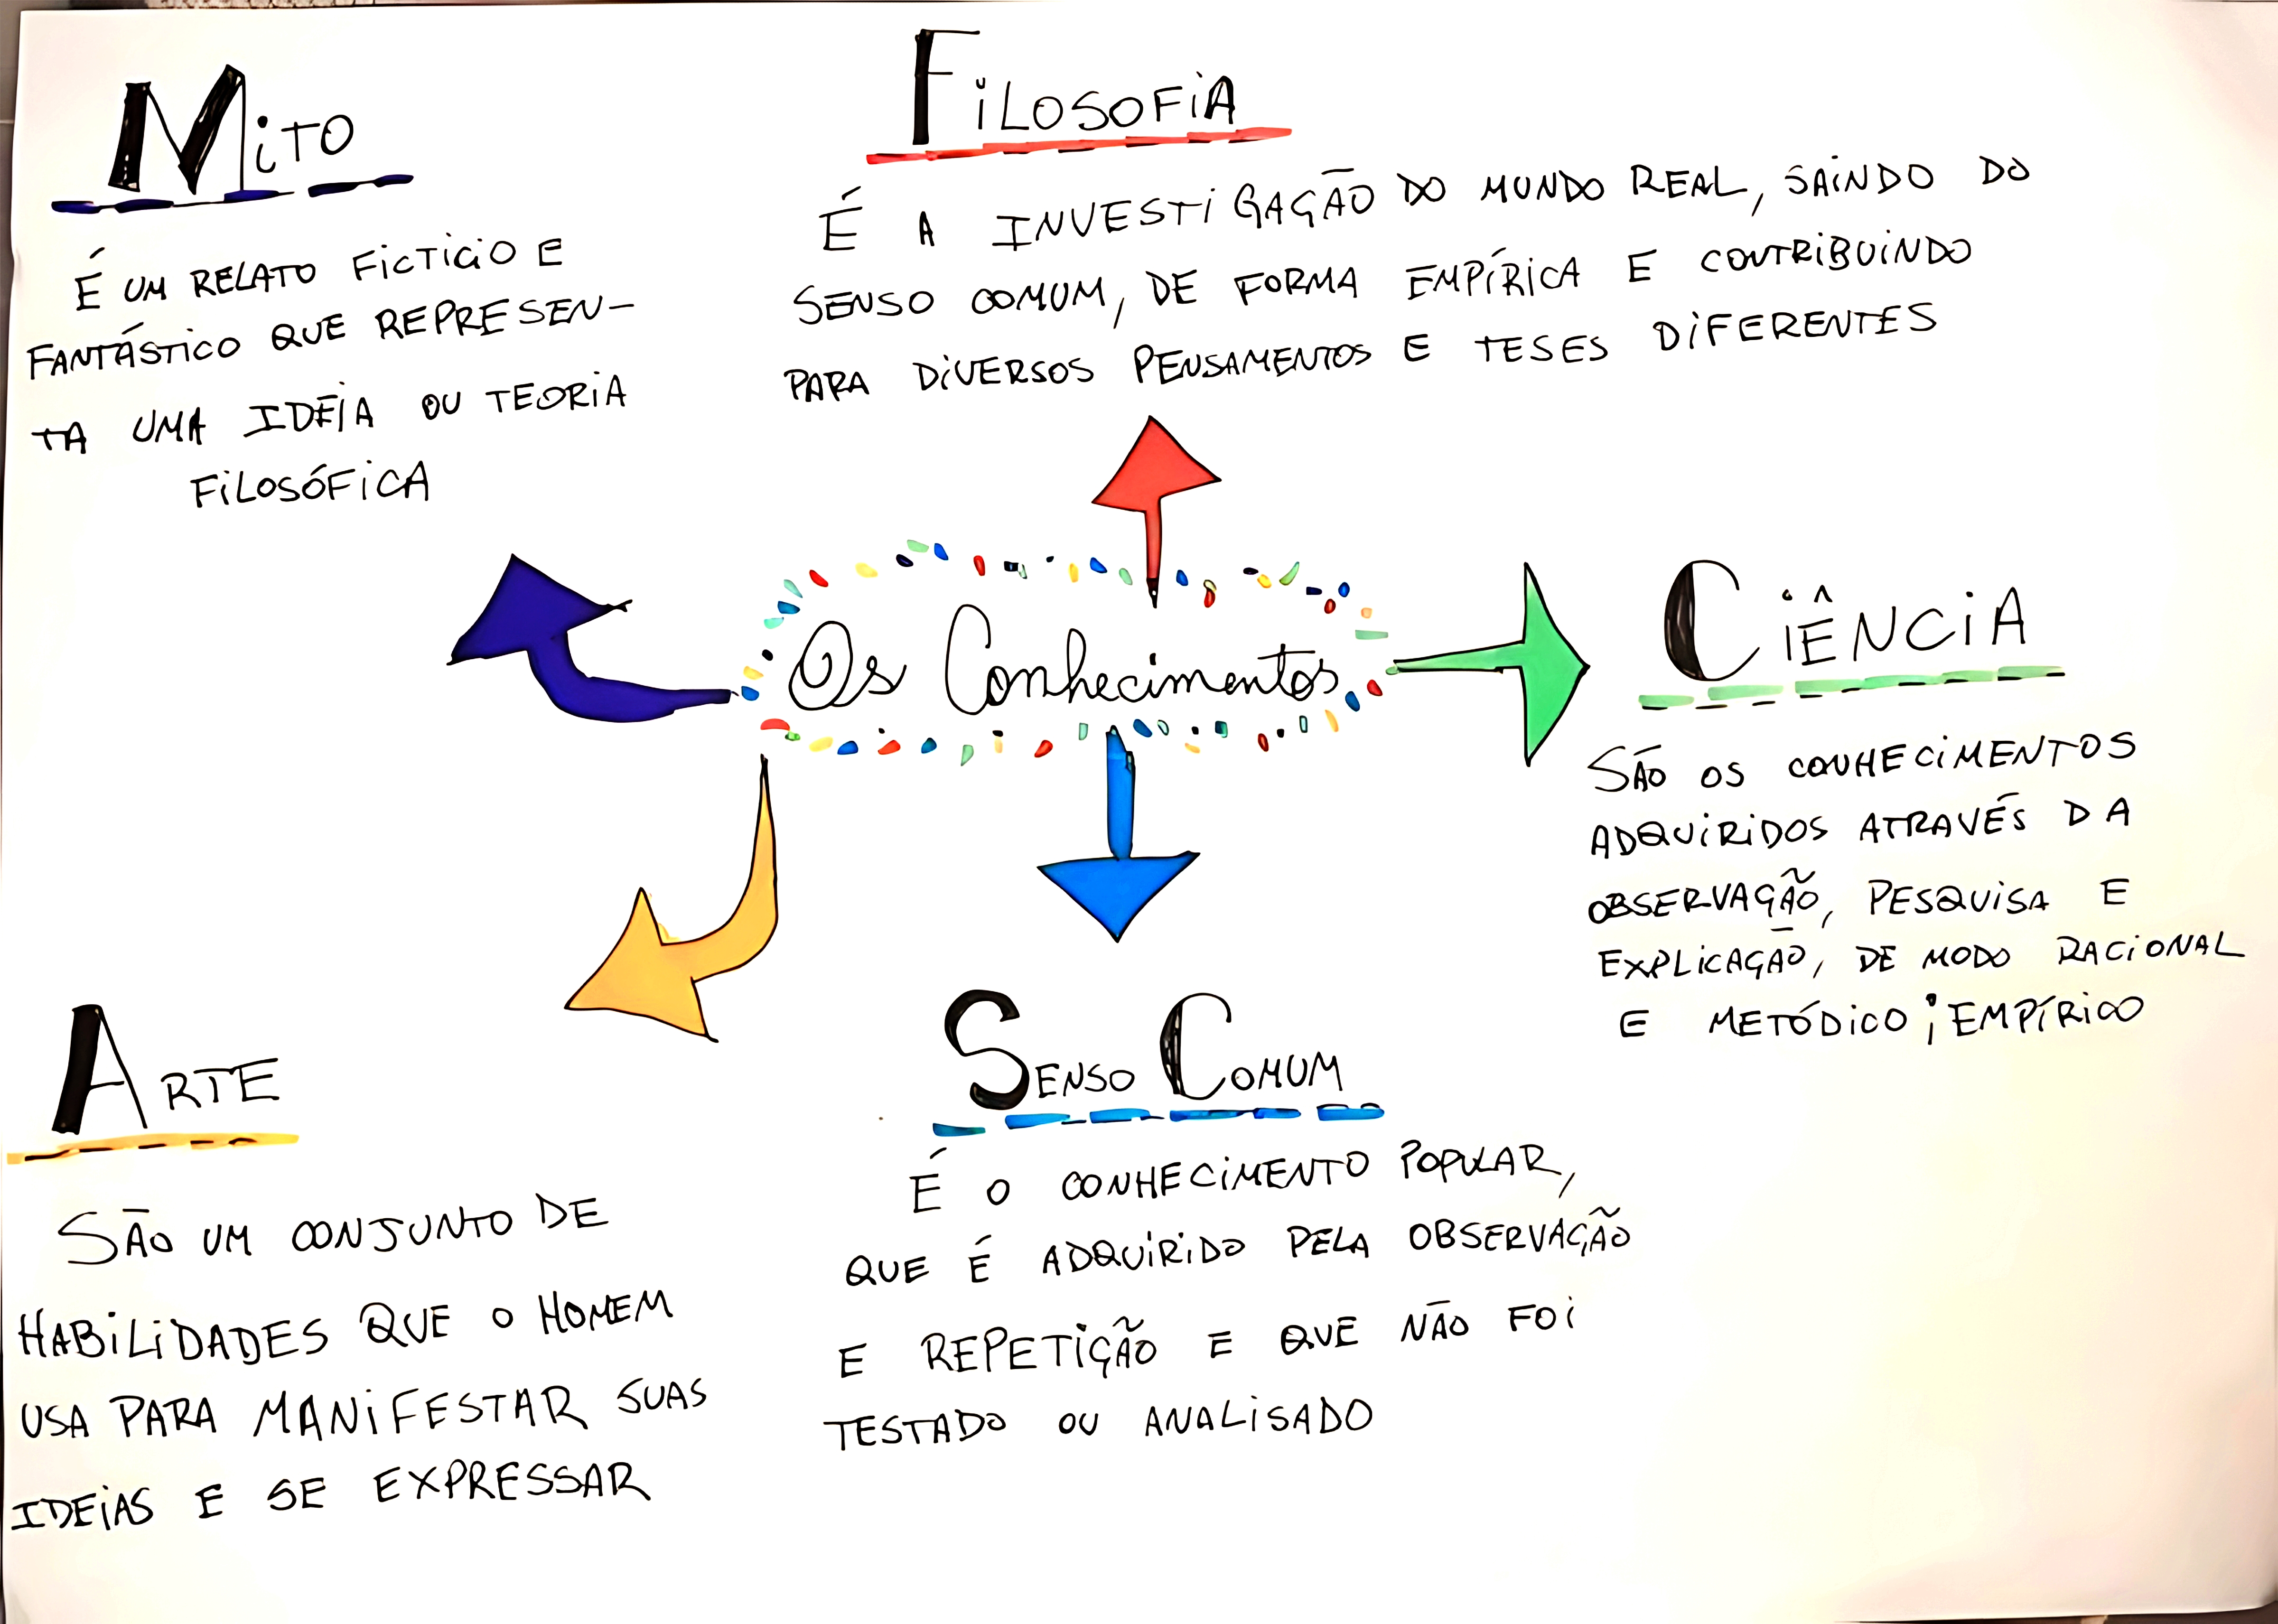 Mito
É um relato ficticio e
fantástico que represen-
ta uma idéia ou teoria
filosófica
Filosofia
É a investigação do mundo real, saindo do
senso comum, de forma empírica e contribuindo
para diversos pensamentos e teses diferentes
Os Conhecimentos
Ciência
São os conhecimentos
adquiridos através da
observação, pesquisa e
explicação, de modo racional
e metódico; empírico
Arte
São um conjunto de
habilidades que o homem
usa para manifestar suas
ideias e se expressar
Senso Comum
É o conhecimento popular,
que é adquirido pela observação
e repetição e que não foi
testado ou analisado